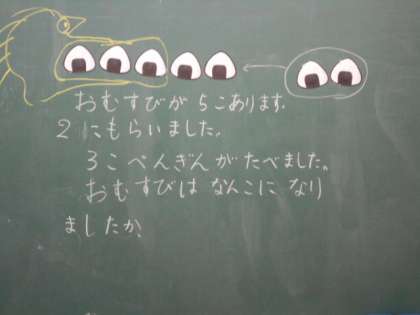 おむすびが 5こあります。
2こもらいました。
3こ ぺんぎんが たべました。
おむすびは なんこに なり
ましたか。